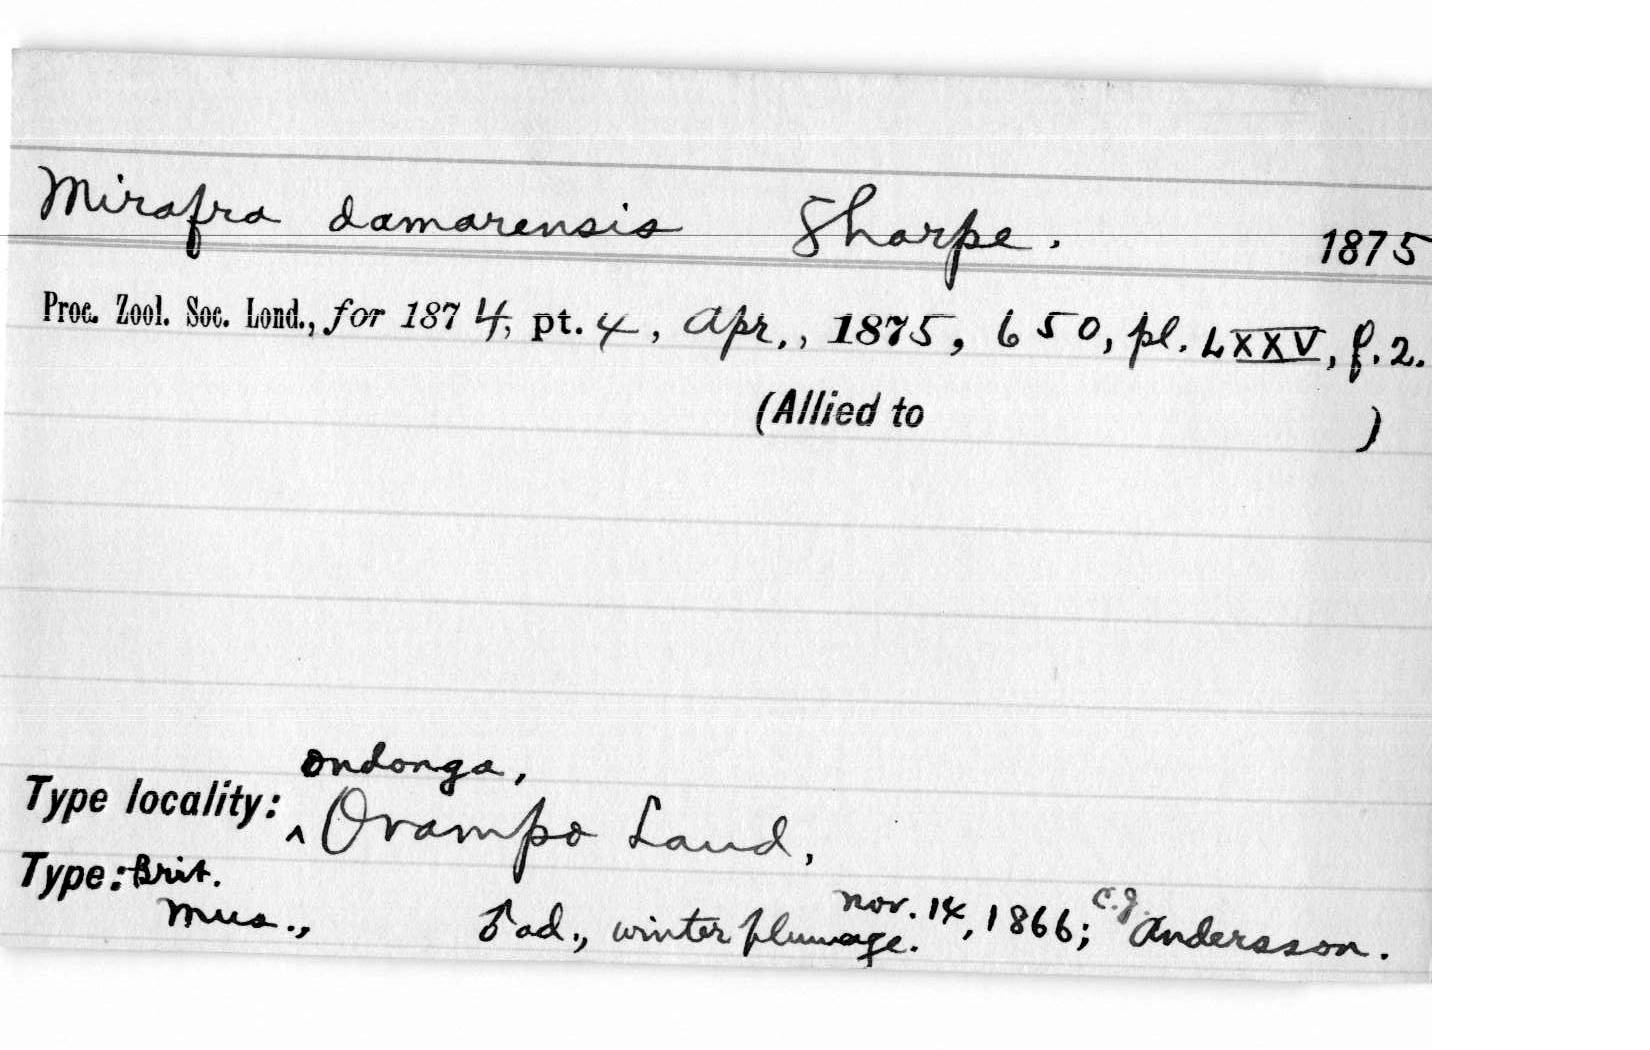 Mirafra damarensis Sharpe. 1875
Proc. Zool. Soc. Lond., for 1874, pt. 4, Apr., 1875, 650, pl. LXXV, f. 2.
(Allied to )
Ondonga,
Type locality: ^ Ovampo Land,
Type: Brit.
Mus., ♂ ad., winter plumage. Nov. 14, 1866; C.J. Andersson.